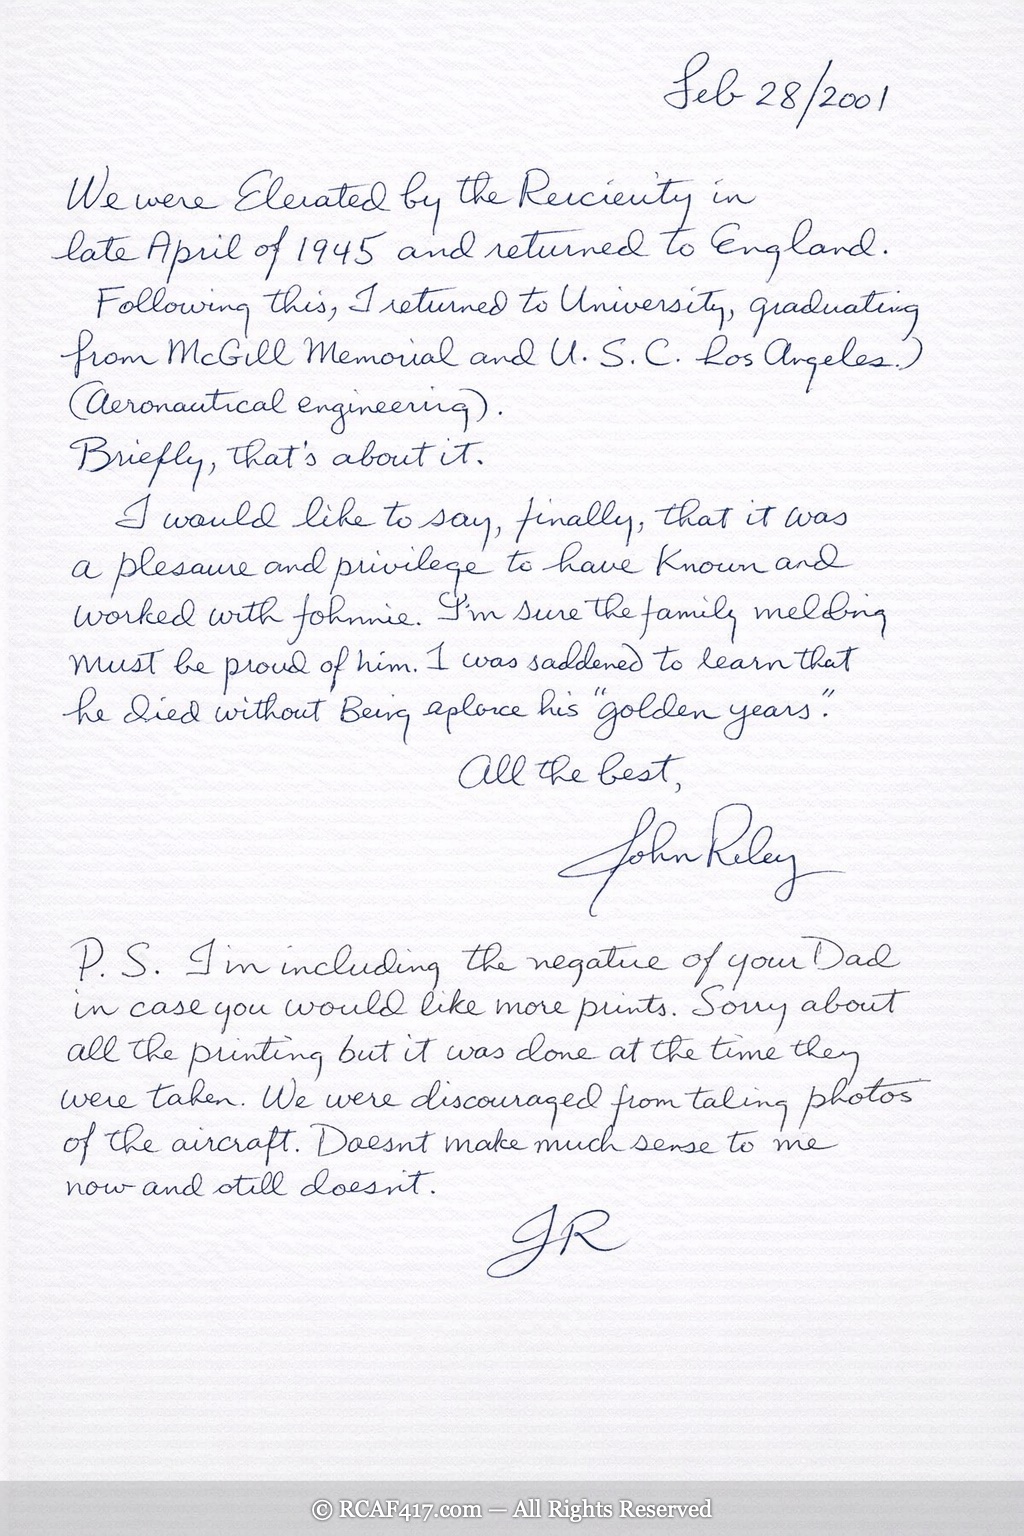 Feb 28/2001
We were Elerated by the Reicierity in
late April of 1945 and returned to England.
Following this, I returned to University, graduating
from McGill Memorial and U. S. C. Los Angeles.)
(Aeronautical engineering).
Briefly, that's about it.
I would like to say, finally, that it was
a plesaure and privilege to have Known and
worked with Johnnie. I'm sure the family
must be proud of him. I was saddened to learn that
he died without Being his "golden years".
All the best,
John Riley
P. S. I'm including the negative of your Dad
in case you would like more prints. Sorry about
all the printing but it was done at the time they
were taken. We were discouraged from taling photos
of the aircraft. Doesnt make much sense to me
now and still doesn't.
JR
© RCAF417.com — All Rights Reserved